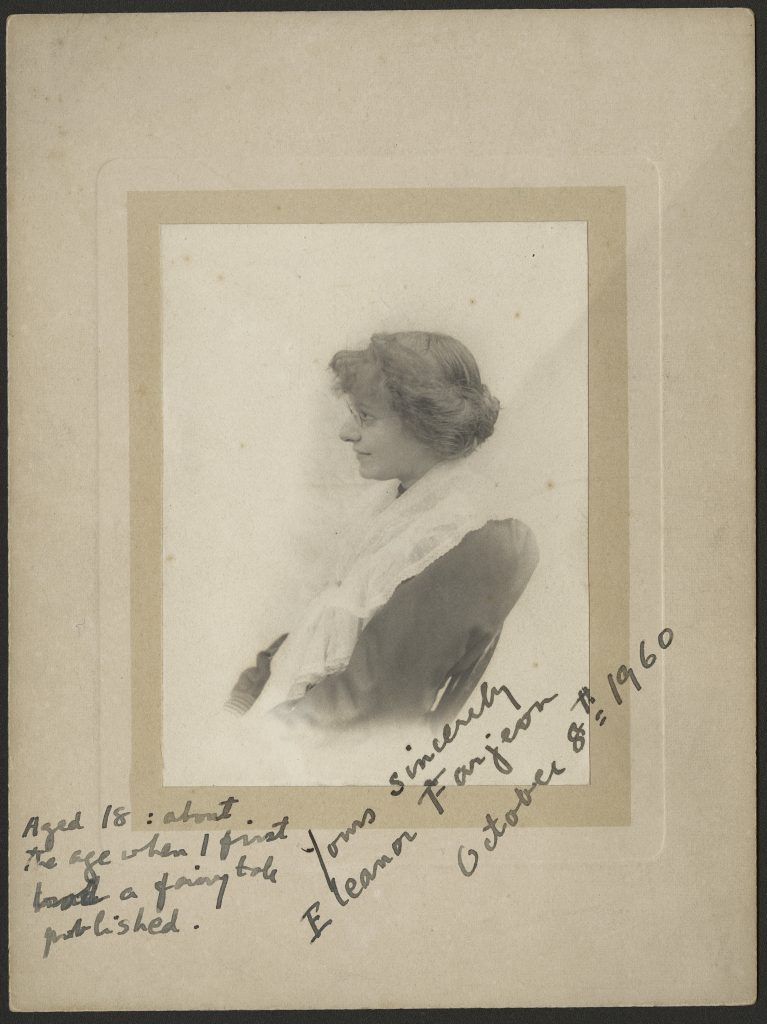 Aged 18 : about
the age when I first
had a fairy tale
published.
Yours sincerely
Eleanor Farjeon
October 8th 1960